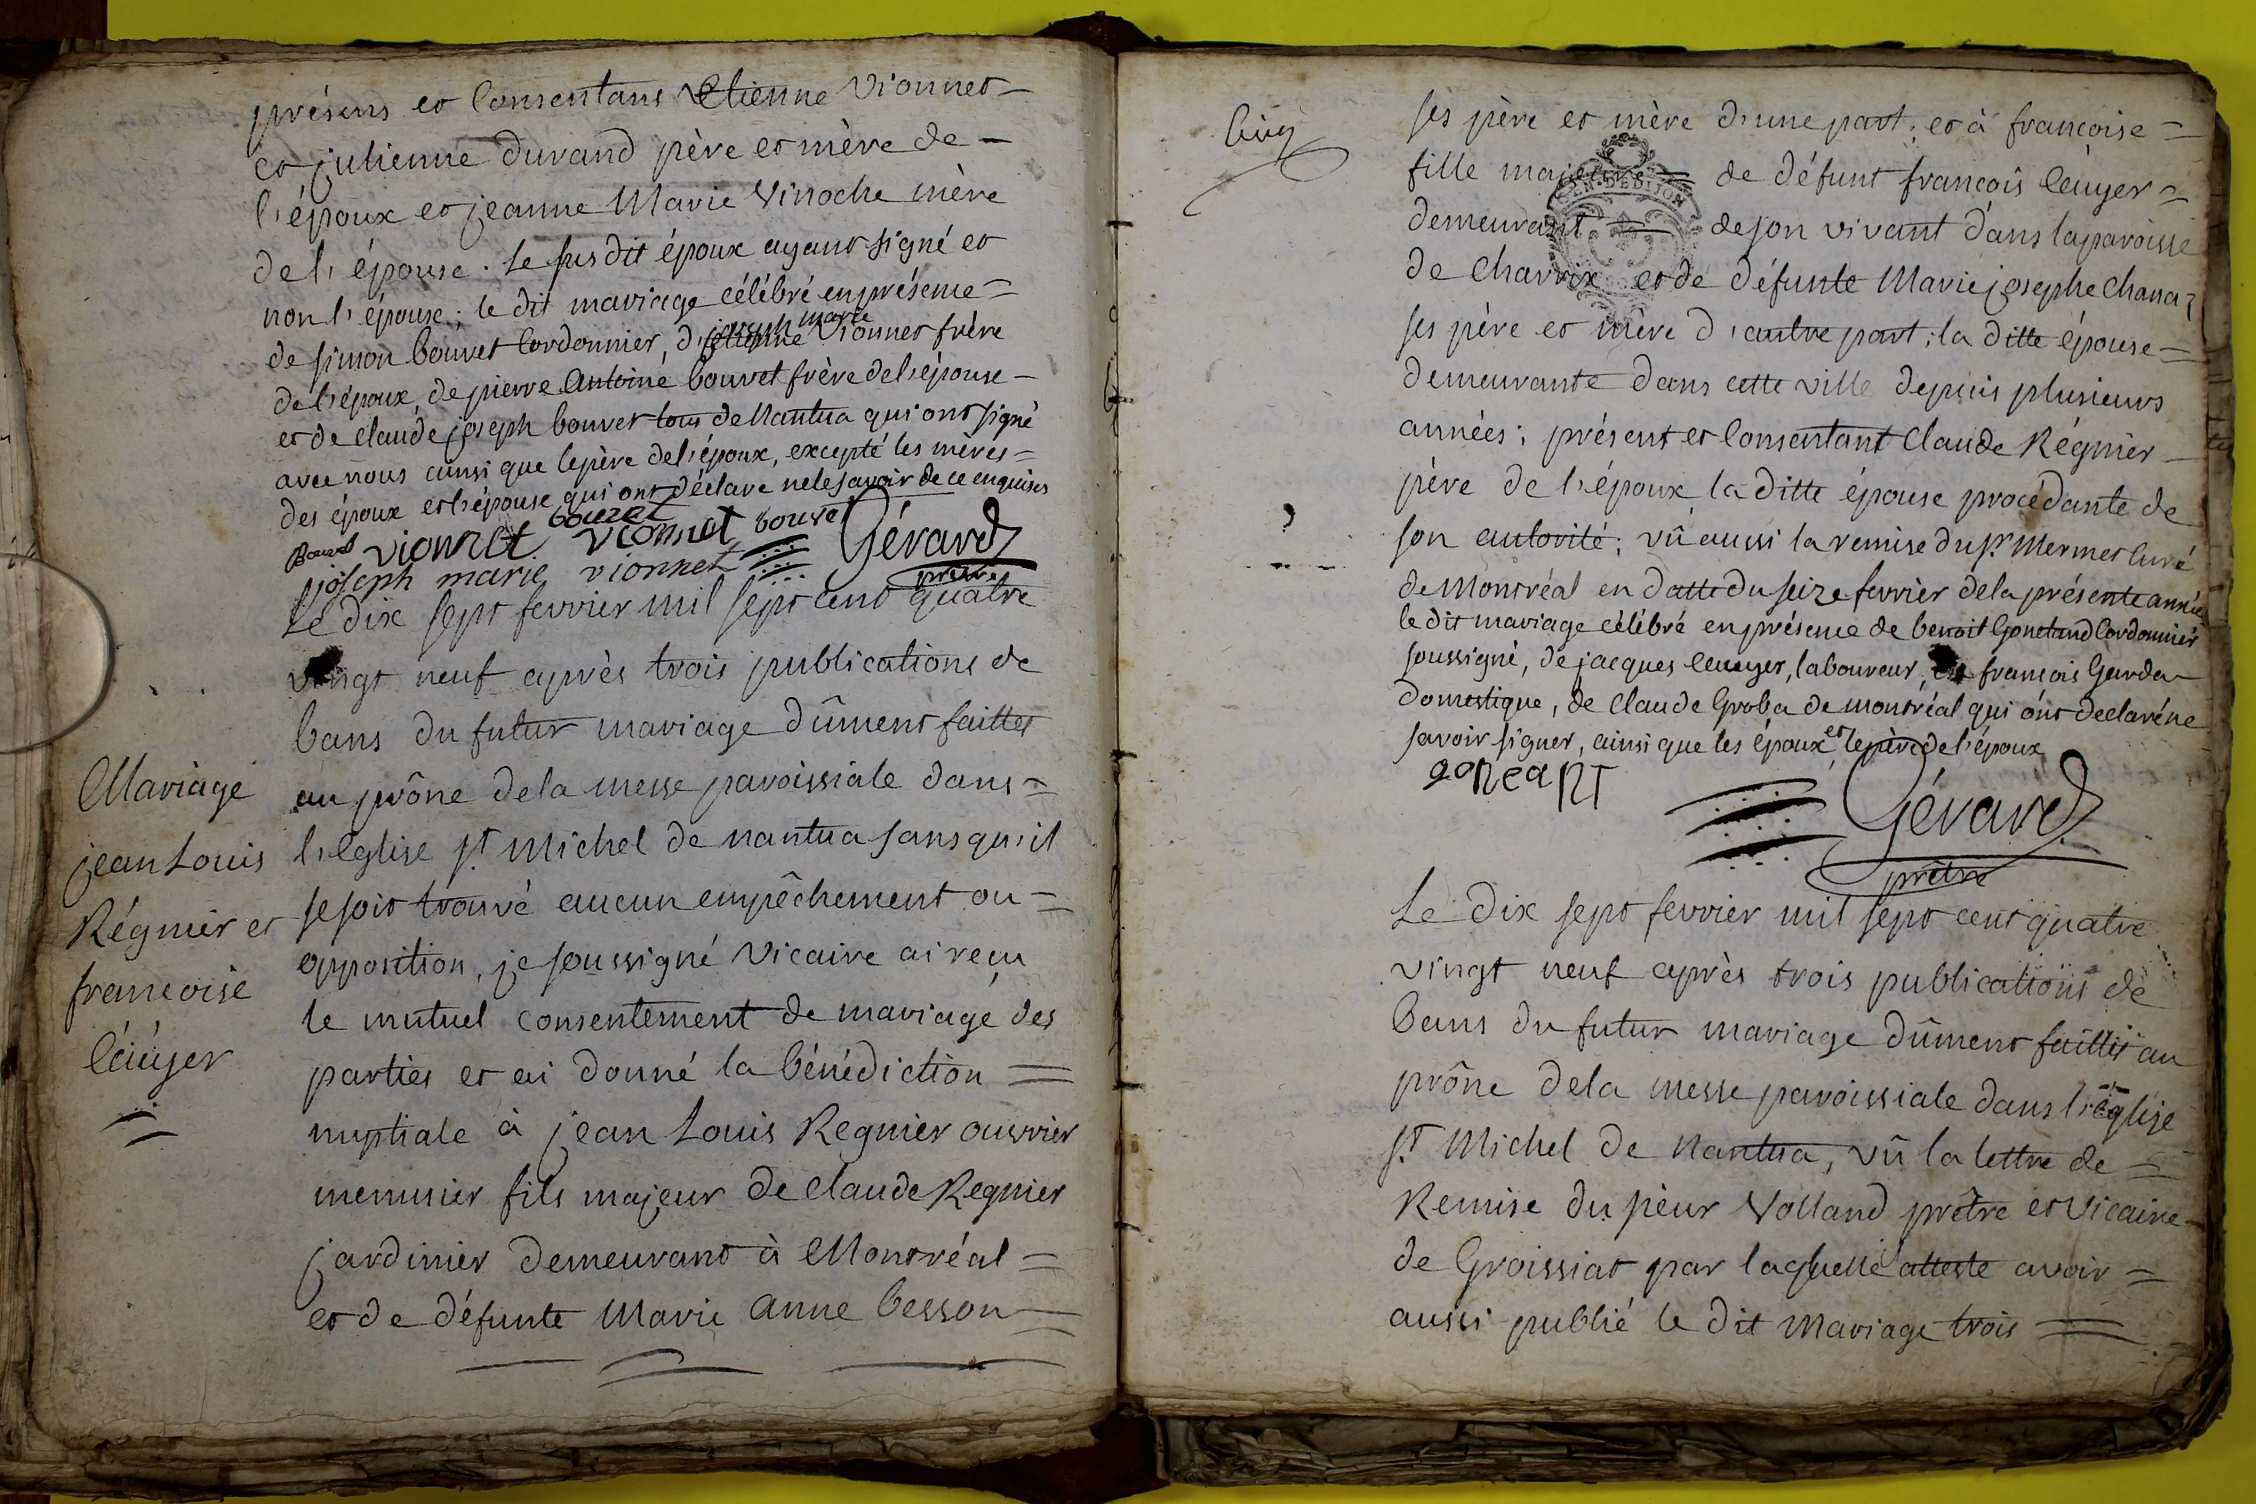 présens et Consentans Etienne Vionnet
et julienne durand père et mère de
l'époux et jeanne Marie Vinoche mère
de l'épouse. Le susdit époux ayant signé et
non l'épouse; le dit mariage célébré en présence
de simon bouvet Cordonnier, d' joseph marie Vionnet frère
de l'époux, de pierre Antoine bouvet frère de l'épouse
et de claude joseph bouvet tous de Nantua qui ont signé
avec nous ainsi que le père de l'époux, excepté les mères
des époux et l'épouse qui ont déclaré ne le savoir de ce enquises
Bouvet vionnet bouvet vionnet bouvet Gérard
joseph marie vionnet prêtre
Le dix sept fevrier mil sept cent quatre
vingt neuf après trois publications de
bans du futur mariage dûment faittes
au prône de la messe paroissiale dans
l'église St Michel de nantua sans qu'il
se soit trouvé aucun empêchement ou
opposition, je soussigné Vicaire ai reçu
le mutuel consentement de mariage des
parties et ai donné la bénédiction
nuptiale à jean Louis Regnier ouvrier
menusier fils majeur de Claude Regnier
jardinier demeurant à Montréal
et de défunte Marie Anne besson
Mariage
jean Louis
Régnier et
francoise
Cüÿer
Cinq
ses père et mère d'une part; et à francoise
fille majeure de défunt francois Cüÿer
demeurant de son vivant dans la paroisse
de Charrix et de défunte Marie josephe Chana
ses père et mère d'autre part; la ditte épouse
demeurante dans cette ville depuis plusieurs
années; présent et Consentant Claude Régnier
père de l'époux la ditte épouse procédante de
son autorité; vû aussi la remise du Sr Mermet Curé
de Montréal en datte du seize fevrier de la présente année
le dit mariage célébré en présence de benoit Gonetand Cordonnier
soussigné, de jacques laboureur, francois Garda
domestique, de Claude Groba de montréal qui ont declaré ne
savoir signer, ainsi que les époux et le père de l'époux
goneant
Gérard
prêtre
Le dix sept fevrier mil sept cent quatre
vingt neuf après trois publications de
bans du futur mariage dûment faittes au
prône de la messe paroissiale dans l'église
St Michel de Nantua, vû la lettre de
Remise du sieur Volland prêtre et Vicaire
de Groissiat par laquelle atteste avoir
aussi publié le dit mariage trois